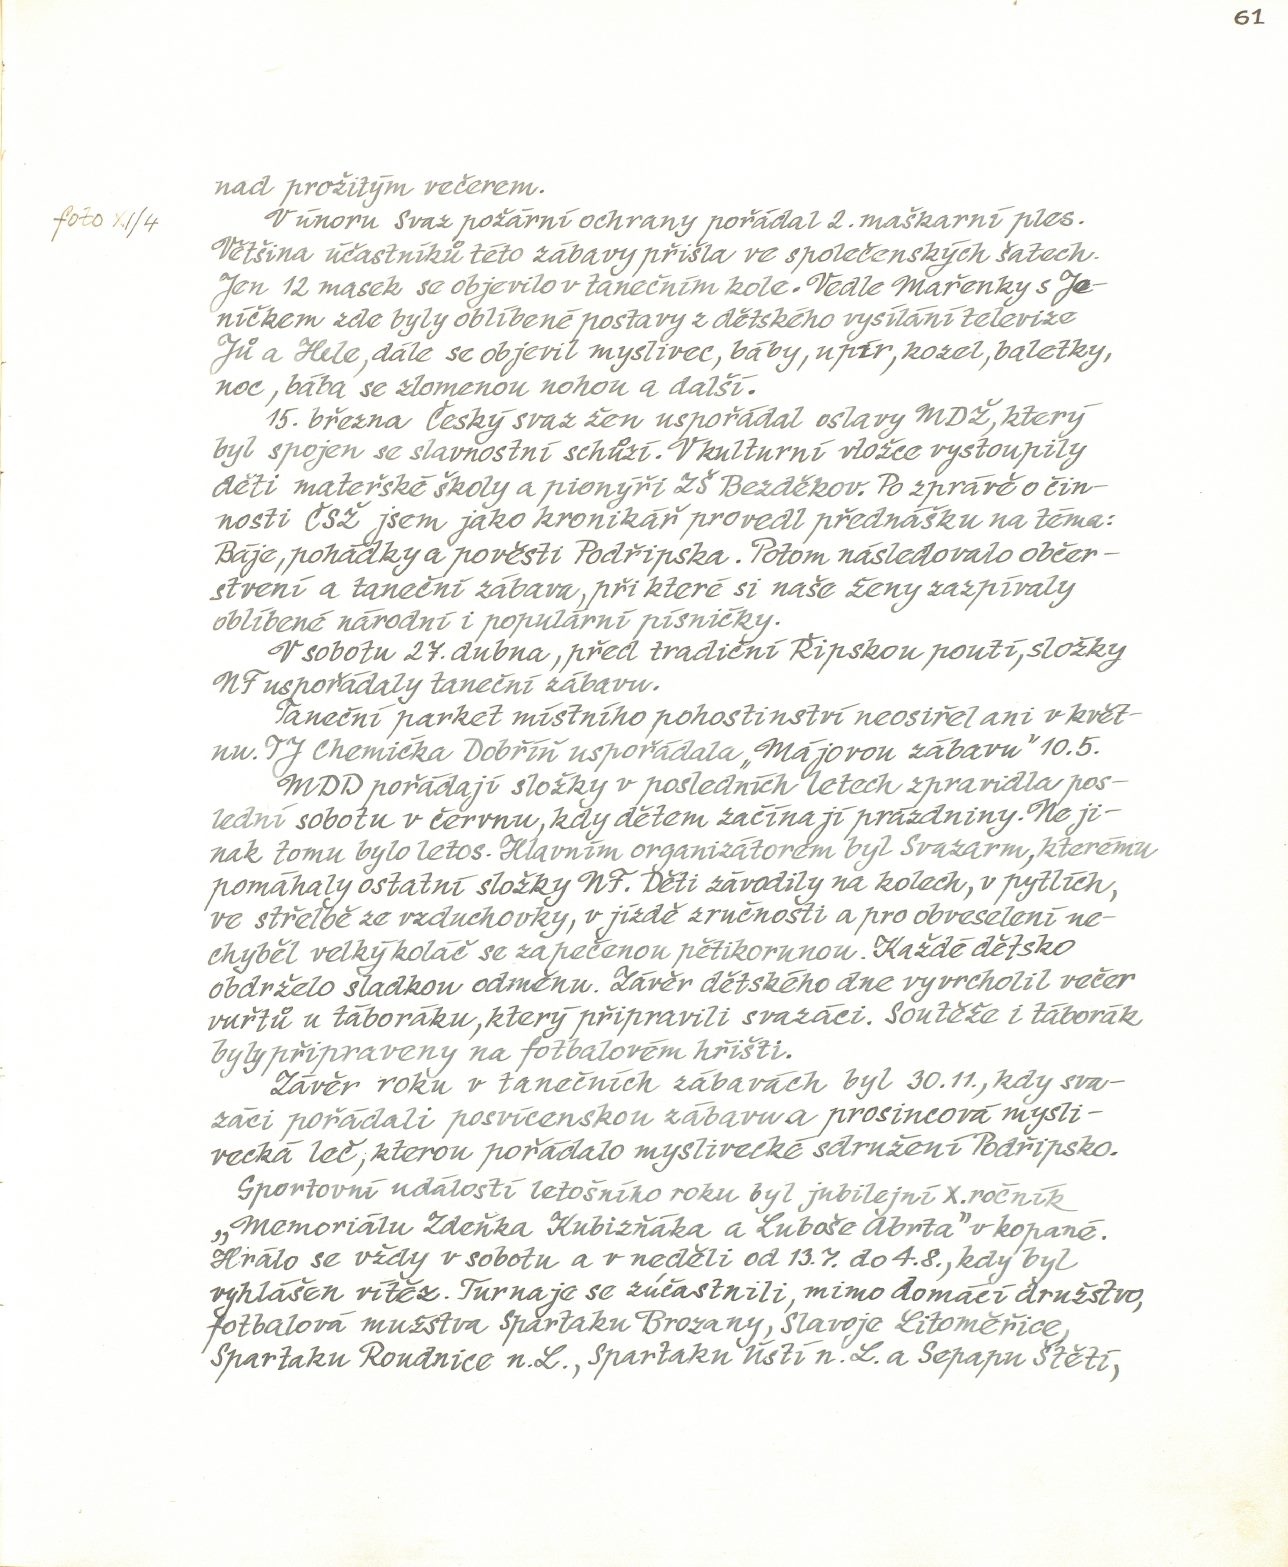 61
nad prožitým večerem.
foto XI/4
V únoru Svaz požární ochrany pořádal 2. maškarní ples.
Většina účastníků této zábavy přišla ve společenských šatech.
Jen 12 masek se objevilo v tanečním kole. Vedle Mařenky s Je-
níčkem zde byly oblíbené postavy z dětského vysílání televize
Jů a Hele, dále se objevil myslivec, báby, upír, kozel, baletky,
noc, bába se zlomenou nohou a další.
15. března Český svaz žen uspořádal oslavy MDŽ, který
byl spojen se slavnostní schůzí. V kulturní vložce vystoupily
děti mateřské školy a pionýři ZŠ Bezděkov. Po zprávě o čin-
nosti ČSŽ jsem jako kronikář provedl přednášku na téma:
Báje, pohádky a pověsti Podřipska. Potom následovalo občer-
stvení a taneční zábava, při které si naše ženy zazpívaly
oblíbené národní i populární písničky.
V sobotu 27. dubna, před tradiční Řipskou poutí, složky
NF uspořádaly taneční zábavu.
Taneční parket místního pohostinství neosiřel ani v květ-
nu. TJ Chemička Dobříň uspořádala „Májovou zábavu" 10.5.
MDD pořádají složky v posledních letech zpravidla pos-
lední sobotu v červnu, kdy dětem začínají prázdniny. Ne ji-
nak tomu bylo letos. Hlavním organizátorem byl Svazarm, kterému
pomáhaly ostatní složky NF. Děti závodily na kolech, v pytlích,
ve střelbě ze vzduchovky, v jízdě zručnosti a pro obveselení ne-
chyběl velký koláč se zapečenou pětikorunou. Každé dětsko
obdrželo sladkou odměnu. Závěr dětského dne vyvrcholil večer
vuřtů u táboráku, který připravili svazáci. Soutěže i táborák
byly připraveny na fotbalovém hřišti.
Závěr roku v tanečních zábavách byl 30.11., kdy sva-
záci pořádali posvícenskou zábavu a prosincová mysli-
vecká leč, kterou pořádalo myslivecké sdružení Podřipsko.
Sportovní událostí letošního roku byl jubilejní X. ročník
„Memoriálu Zdeňka Kubizňáka a Luboše Abrta" v kopané.
Hrálo se vždy v sobotu a v neděli od 13.7. do 4.8., kdy byl
vyhlášen vítěz. Turnaje se zúčastnili, mimo domácí družstvo,
fotbalová mužstva Spartaku Brozany, Slavoje Litoměřice,
Spartaku Roudnice n.L., Spartaku Ústí n.L. a Sepapu Štětí,